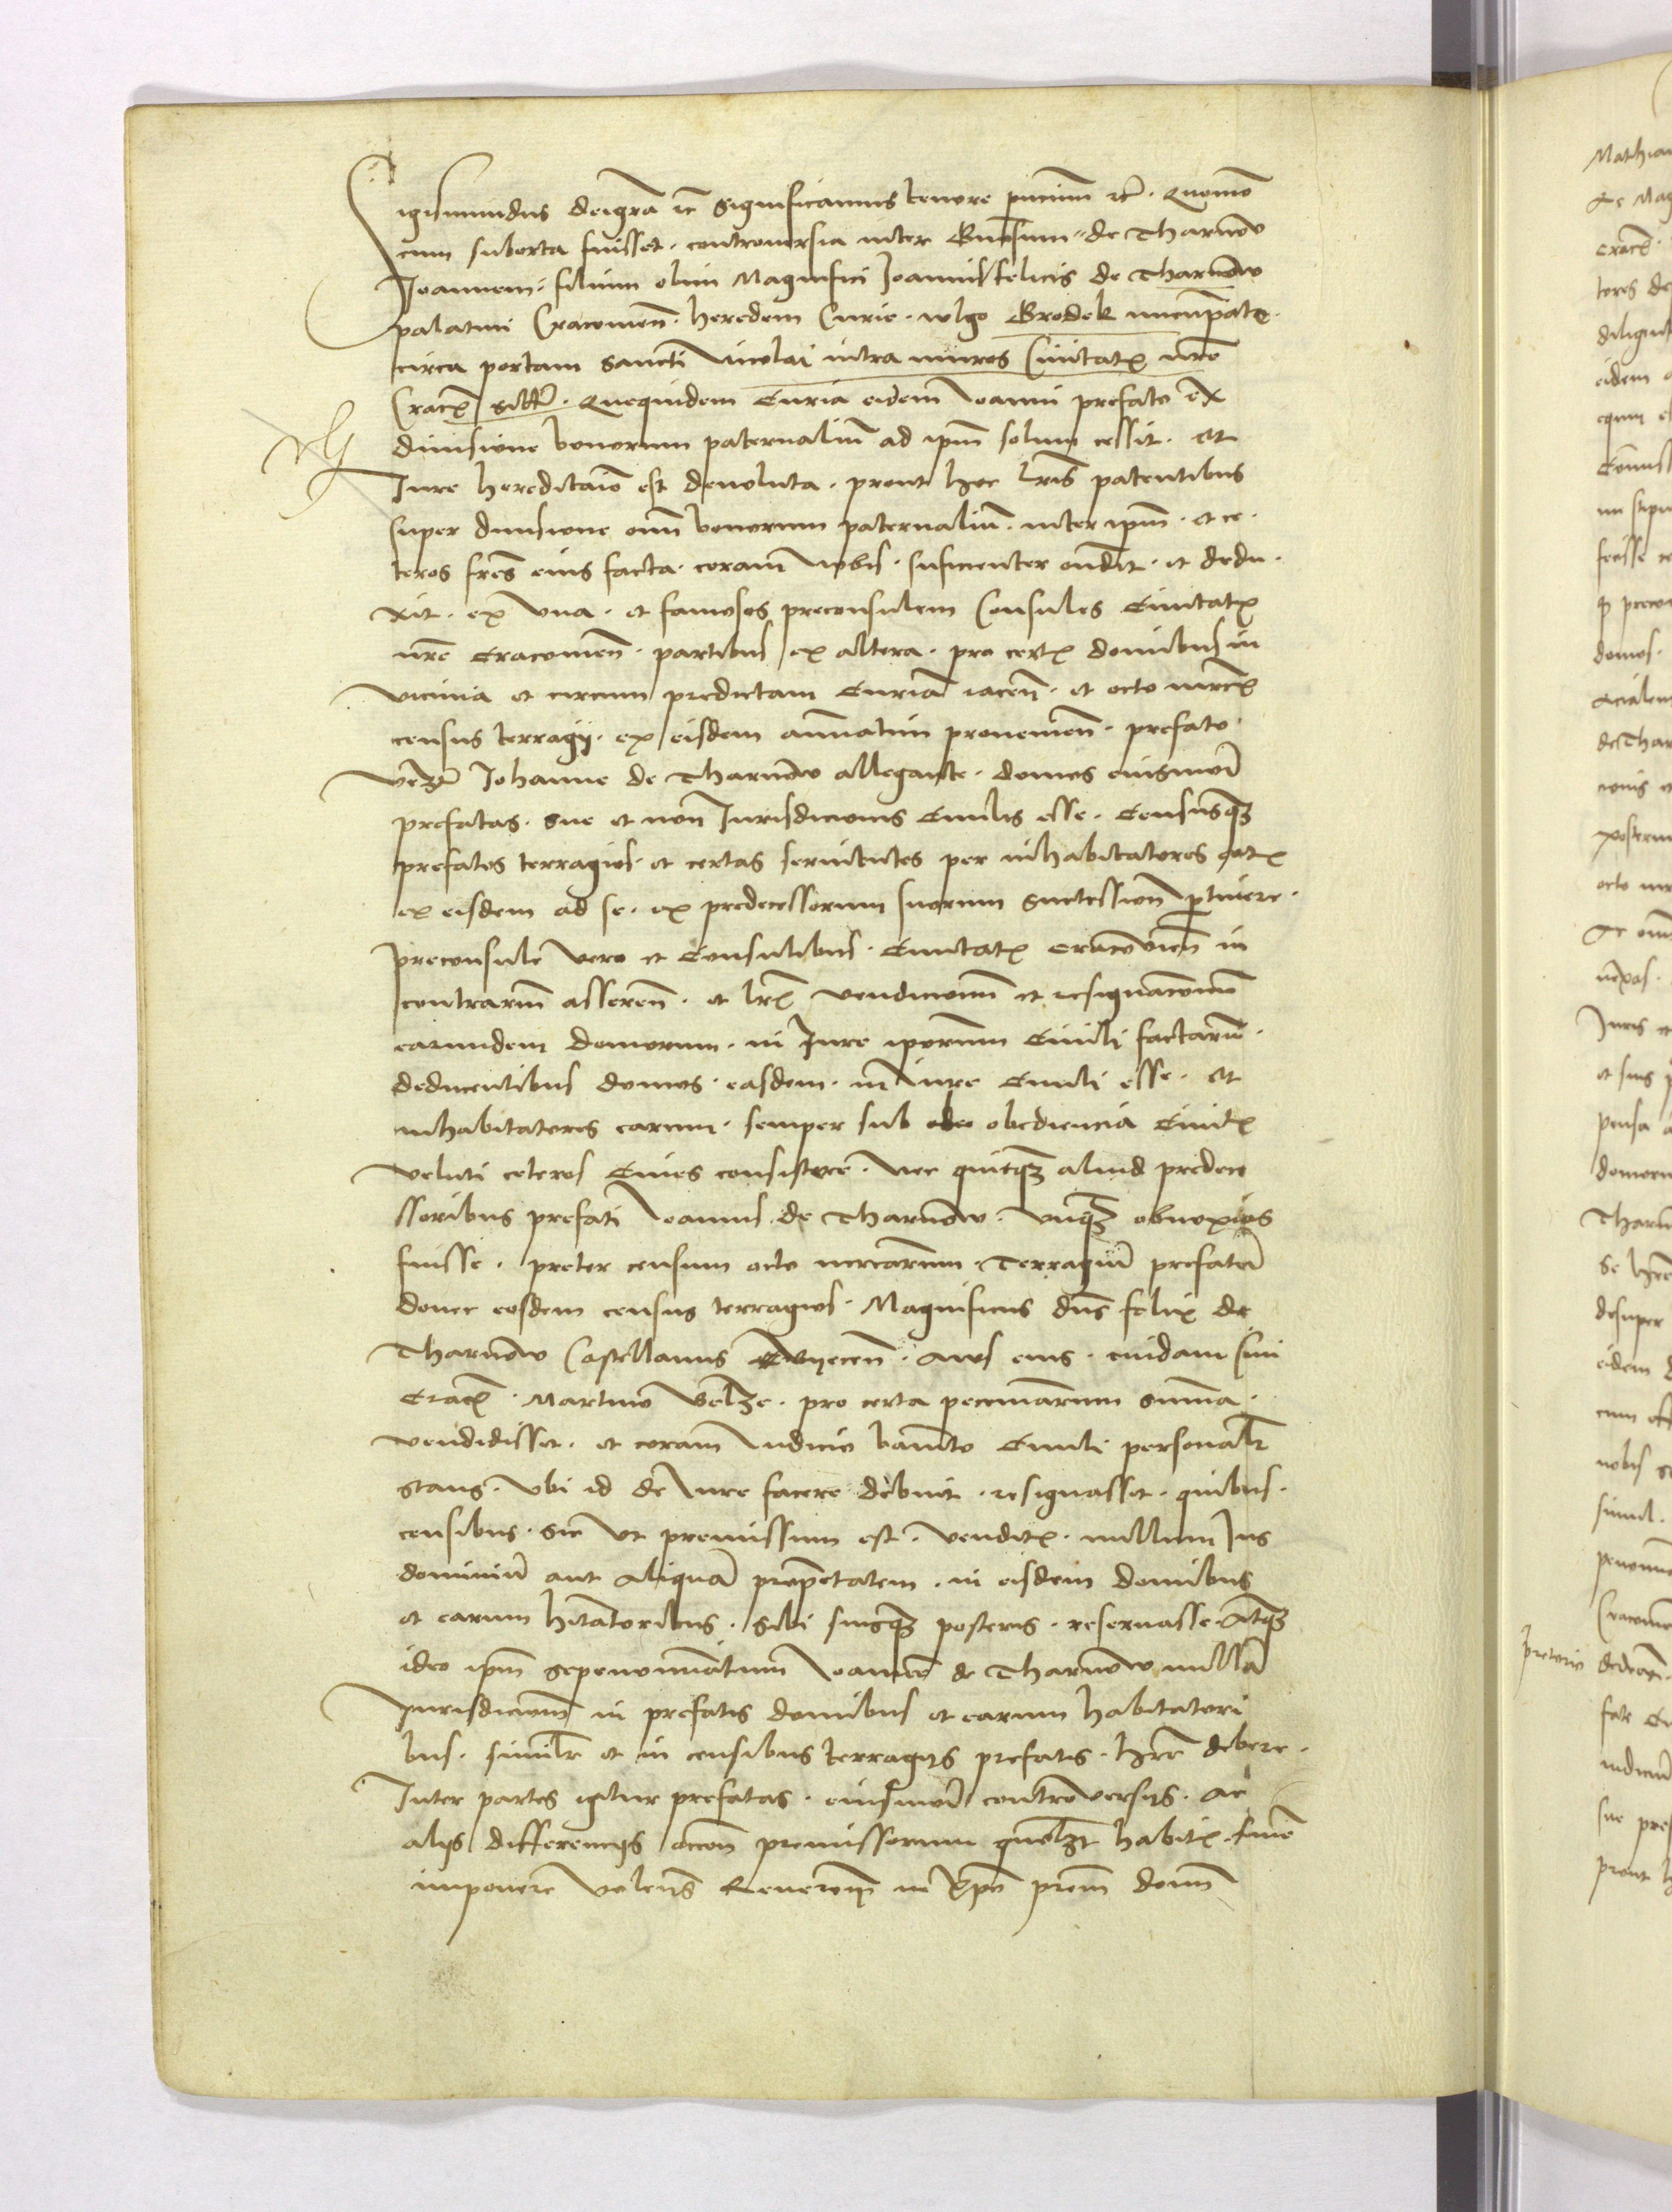 Sigismundus dei gra etc Significamus tenore pncium etc. Quomo
cum suborta fuisset. controuersia inter Gnosum de Tharnow
Joannem. filium olim Magnifici Joannis felicis de Tharnow
palatini Cracouien. heredem Curie. wlgo Grodek nuncupate.
circa portam sancti Nicolai intra muros Ciuitatis nre
Crac. Quequidem Curia eidem Joanni prefato ex
diuisione bonorum paternaliu ad ipm solum cessit. et
Jure hereditario est deuoluta. prout hoc lris patentibus
super diuisione oim bonorum paternaliu. inter ipm. et ce.
teros fres eius facta. coram nobis. suficienter ondit. et dedu.
xit. ex vna. et famosos preconsulem Consules Ciuitatis
nre Cracouien. partibus ex altera. pro certis domibus in
vicinia et circum predictam Curia iacen. et octo mrcis
census terragij. ex eisdem annuatim prouenien. prefato
Johanne de Tharnow allegante. domos eiusmoi
prefatas. sue et non Jurisdicionis Ciuilis esse. Censusq3
prefatos terragios. et certas seruitutes per inhabitatores
ex eisdem ad se. ex predecessorum suorum successione ptinere.
preconsule vero et Consulibus. Ciuitatis Cracouien in
contrarium asseren. et lris vendicionum et resignacionum
earundem domorum. in Jure ipsorum Ciuili factaru.
deducentibus domos. easdem. in Jure Ciuili esse. et
inhabitatores earum. semper sub obediencia Ciuitatis
veluti ceteros Ciues consistere. nec quicq3 aliud predece
ssoribus prefati Joannis. de Tharnow. vnq3 obnoxios
fuisse. preter censum octo mrcarum. Terragiu prefatu
donec eosdem census terragios. Magnificus dns felix de
Tharnow Castellanus. Auus eius. cuidam Ciui
Crac. Martino Belze. pro certa pecuniarum suma.
vendidisset. et coram Judicio bannito Ciuili personalr
stans. vbi id de Jure facere debuit. resignassit. quibus.
censibus. sic vt premissum est. venditis. nullum Jus
dominiu aut aliqua proprietatem. in eisdem domibus
et earum hitatoribus. sibi suisq3 posteris. reseruasse. Atq3
ideo ipm sepenominatum Joanne de Tharnow nulla
Jurisdicionem in prefatis domibus et earum habitatori
bus. similr et in censibus terragijs prefatis. hre debere.
Inter partes igitur prefatas. eiusmoi controuersijs. ac
alijs differencijs occasione premissorum habitis. fine
imponere volens Reuerendum in xpo prem domin
pretorio